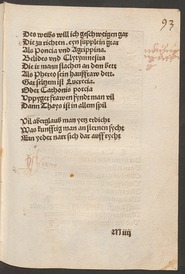 93
Des weibs will ich geschweigen gar
Die zu richten / eyn supplein gtar
Als Poncia vnd Agrippina.
Belides vnd Clytymnestra
Die ir mann stachen an dem bett
Als Pherei sein haußfraw dett.
Gar seltzen ist Lucrecia.
Oder Cathonis porcia
Vppyger frawen fyndt man vil
Dann Thays ist in allem spil
Vil aberglaub man yetz erdicht
Was kunfftig man an sternen sycht
Eyn yeder narr sich dar auff rycht